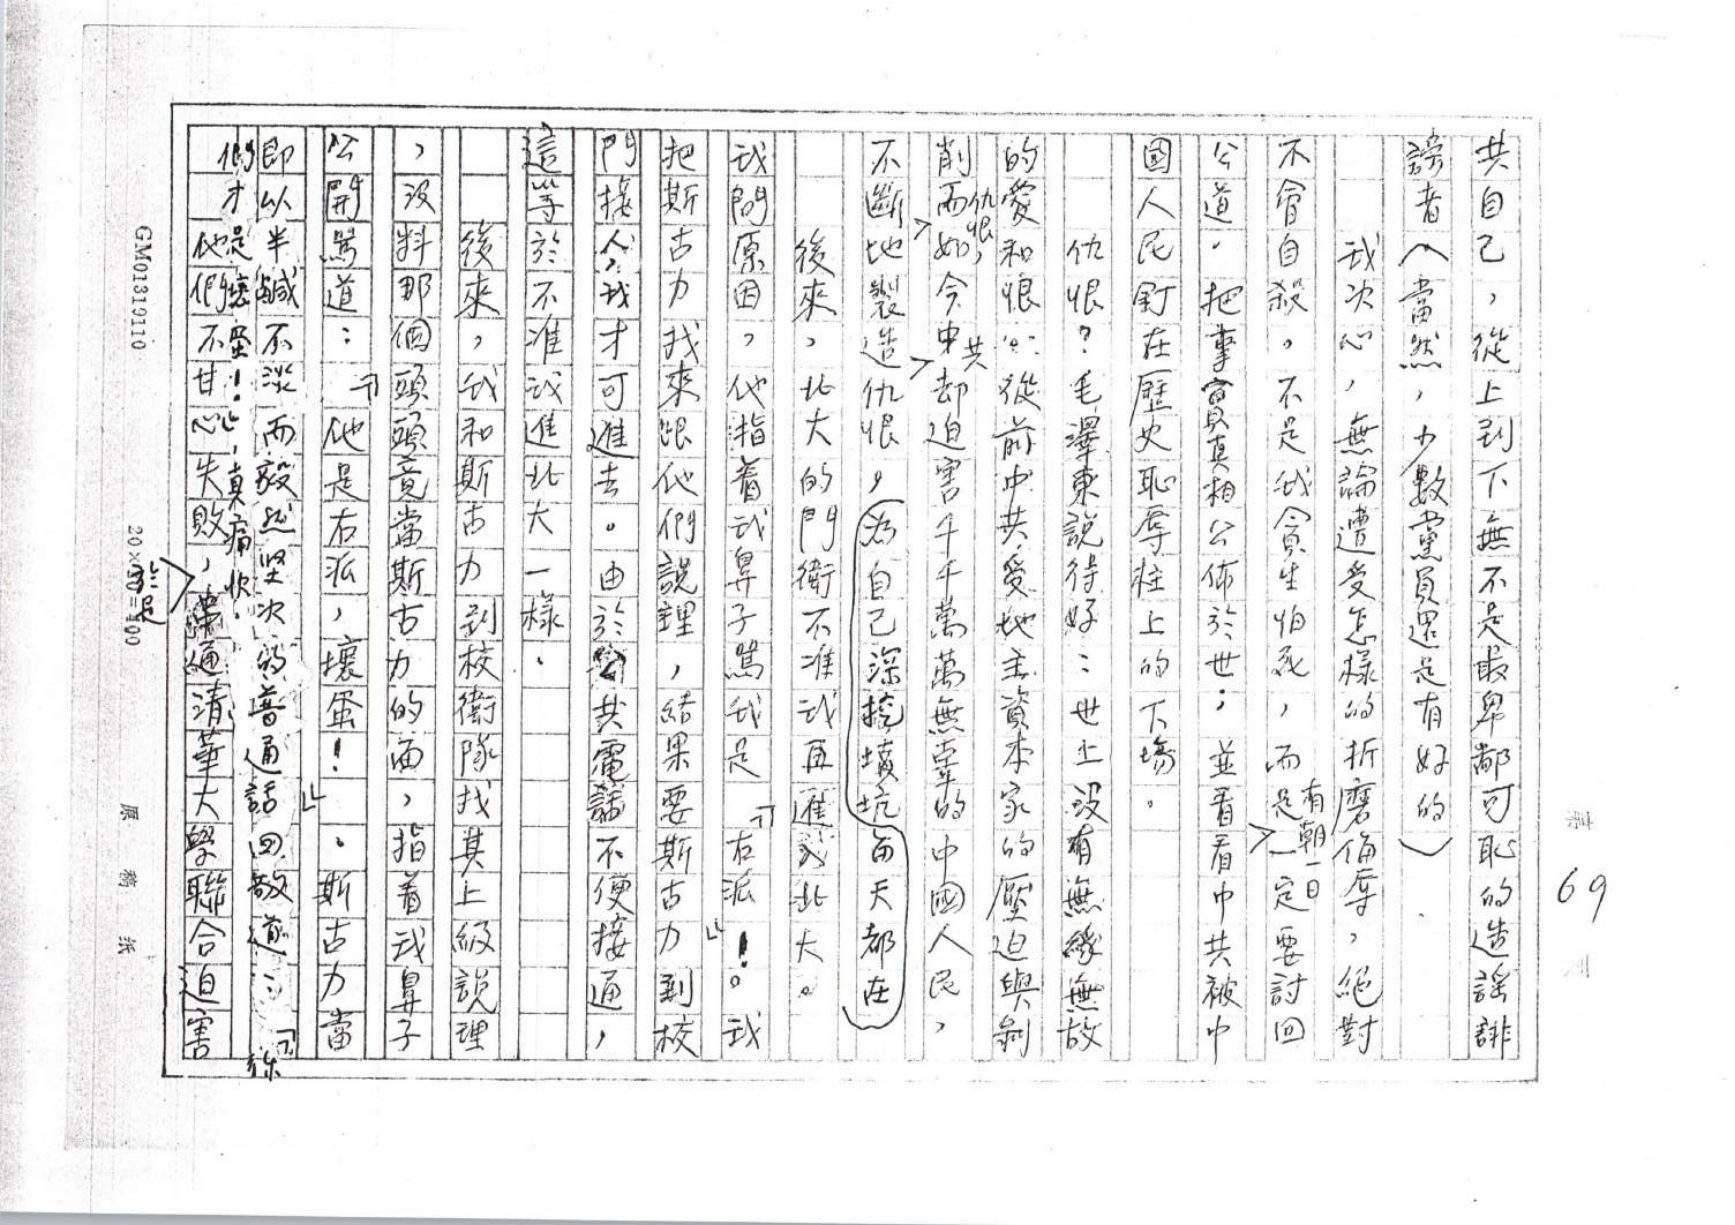 第 69 頁
共自己，從上到下無不是最卑鄙可恥的造謠誹
謗者（當然，少數黨員還是有好的）.
我決心，無論遭受怎樣的折磨侮辱，絕對
不會自殺。不是我貪生怕死，而是有朝一日一定要討回
公道。把事實真相公佈於世；並看看中共被中
國人民釘在歷史恥辱柱上的下場。
仇恨？毛澤東說得好：世上没有無緣無故
的愛和恨……從前中共受地主資本家的壓迫與剝
削而仇恨，如今中共却迫害千千萬萬無辜的中國人民，
不斷地製造仇恨，為自己深挖墳坑每天都在
後來，北大的門衛不准我再進北大。
我問原因，他指着我鼻子罵我是「右派」！。我
把斯古力找來跟他們說理，結果要斯古力到校
門接人，我才可進去。由於公共電話不便接通，
這等於不准我進北大一樣。
後來，我和斯古力到校衛隊找其上級說理
，没料那個頭頭竟當斯古力的面，指着我鼻子
公開罵道：「他是右派，壞蛋！」。斯古力當
即以半鹹不淡而毅然堅決的普通話回敬道：「你
們才是壞蛋！」，真痛快.
他們不甘心失敗，於是串通清華大學聯合迫害
GM01319110
20×20=400
原稿紙